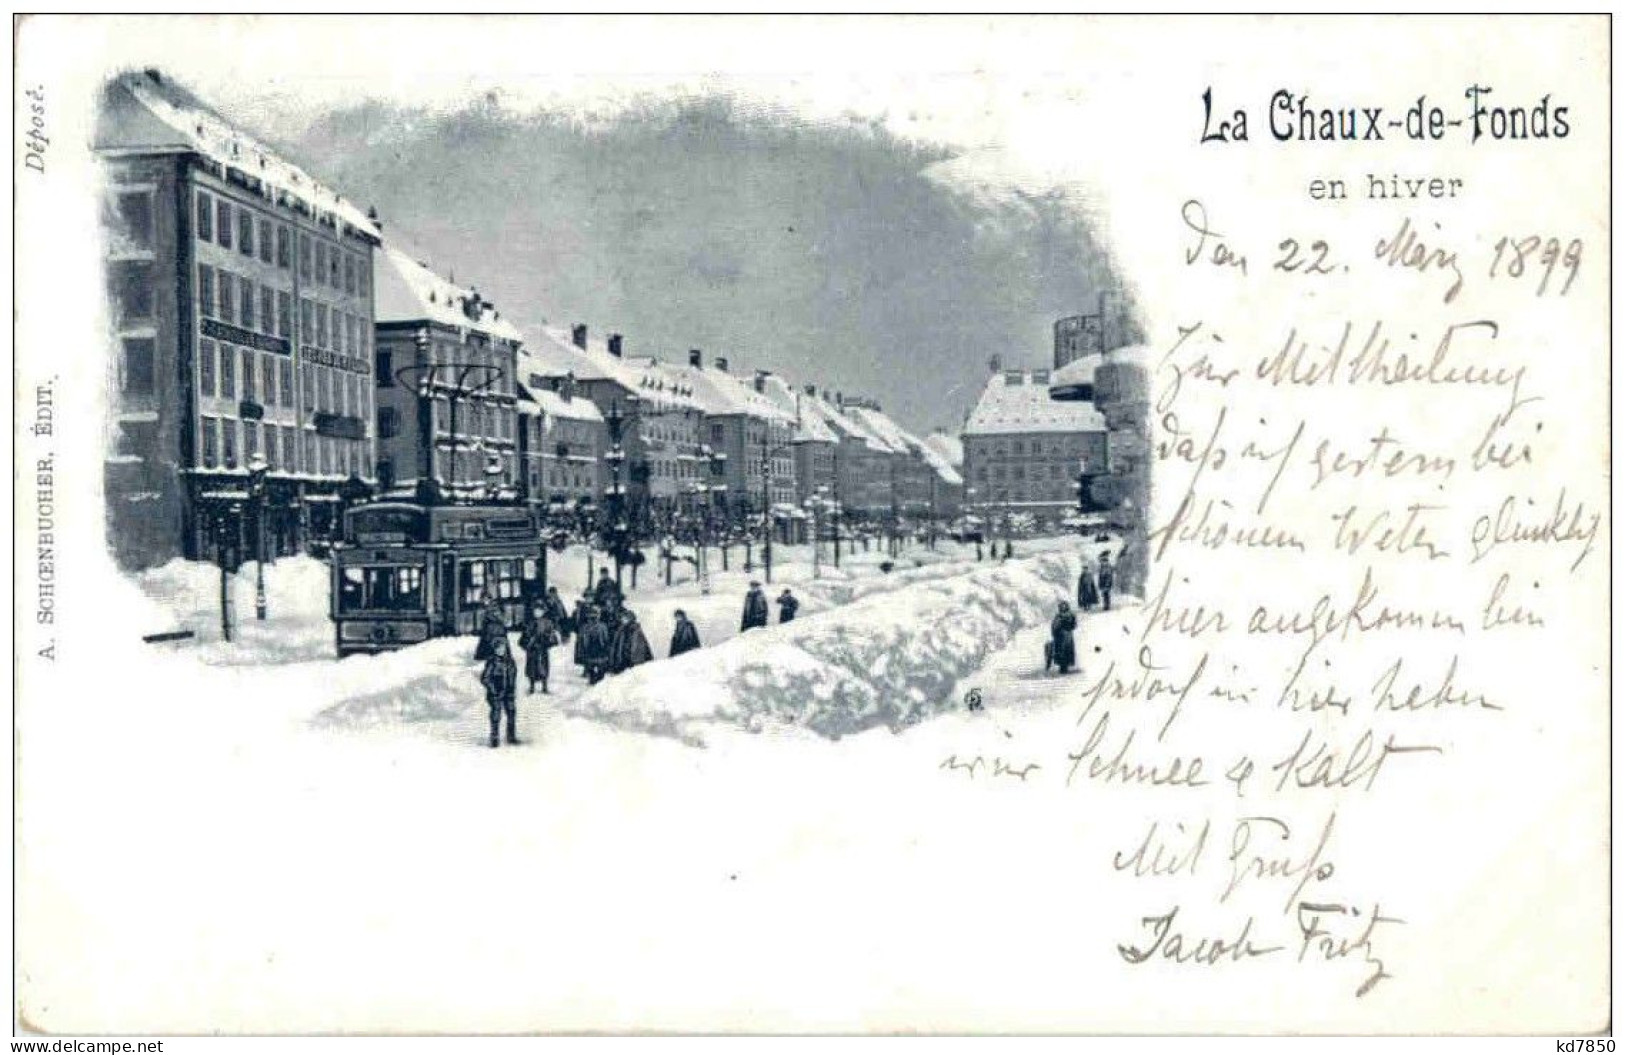 La Chaux-de-Fonds
en hiver
Déposé.
A. SCHŒNBUCHER, ÉDIT.
Den 22. März 1899
Zur Mittheilung
daß ich gestern bei
schönem Weter glücklich
hier angekommen bin
jedoch in hier haben
wir Schnee & Kalt
Mit Gruß
Jacob Fritz
www.delcampe.net
kd7850